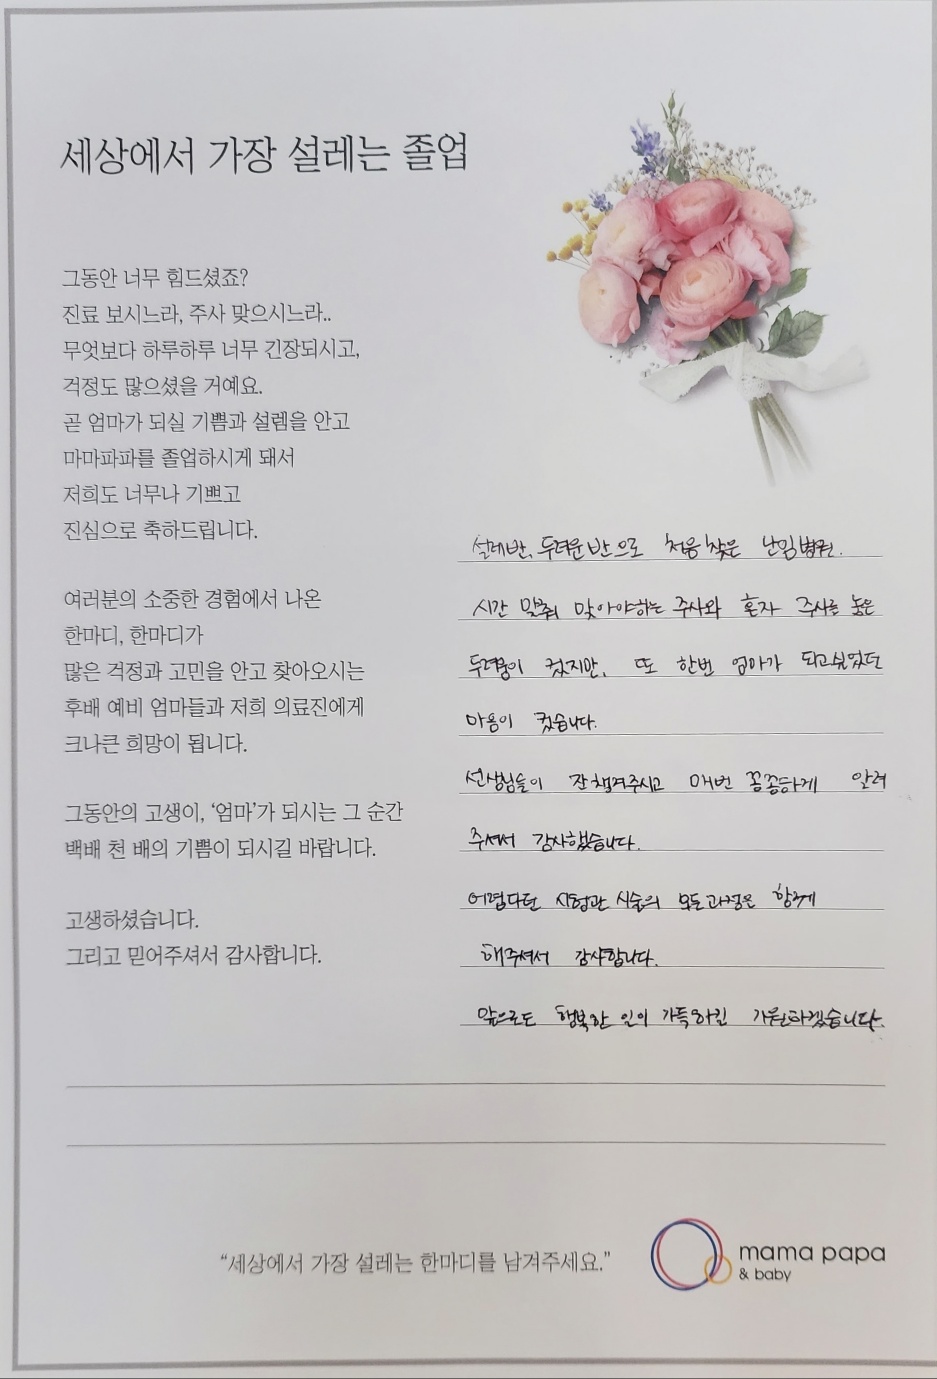 세상에서 가장 설레는 졸업
그동안 너무 힘드셨죠?
진료 보시느라, 주사 맞으시느라..
무엇보다 하루하루 너무 긴장되시고,
걱정도 많으셨을 거예요.
곧 엄마가 되실 기쁨과 설렘을 안고
마마파파를 졸업하시게 돼서
저희도 너무나 기쁘고
진심으로 축하드립니다.
여러분의 소중한 경험에서 나온
한마디, 한마디가
많은 걱정과 고민을 안고 찾아오시는
후배 예비 엄마들과 저희 의료진에게
크나큰 희망이 됩니다.
그동안의 고생이, '엄마'가 되시는 그 순간
백배 천 배의 기쁨이 되시길 바랍니다.
고생하셨습니다.
그리고 믿어주셔서 감사합니다.
설레반, 두려운 반으로 처음 찾은 난임병원.
시간 맞춰 맞아야하는 주사와 혼자 주사를 놓은
두려움이 컸지만, 또 한번 엄마가 되고싶었던
마음이 컸습니다.
선생님들이 잘 챙겨주시고 매번 꼼꼼하게 알려
주셔서 감사했습니다.
어렵다던 시험관 시술의 모든과정은 함께
해주셔서 감사합니다.
앞으로도 행복한 일이 가득하길 기원하겠습니다.
"세상에서 가장 설레는 한마디를 남겨주세요."
mama papa
& baby